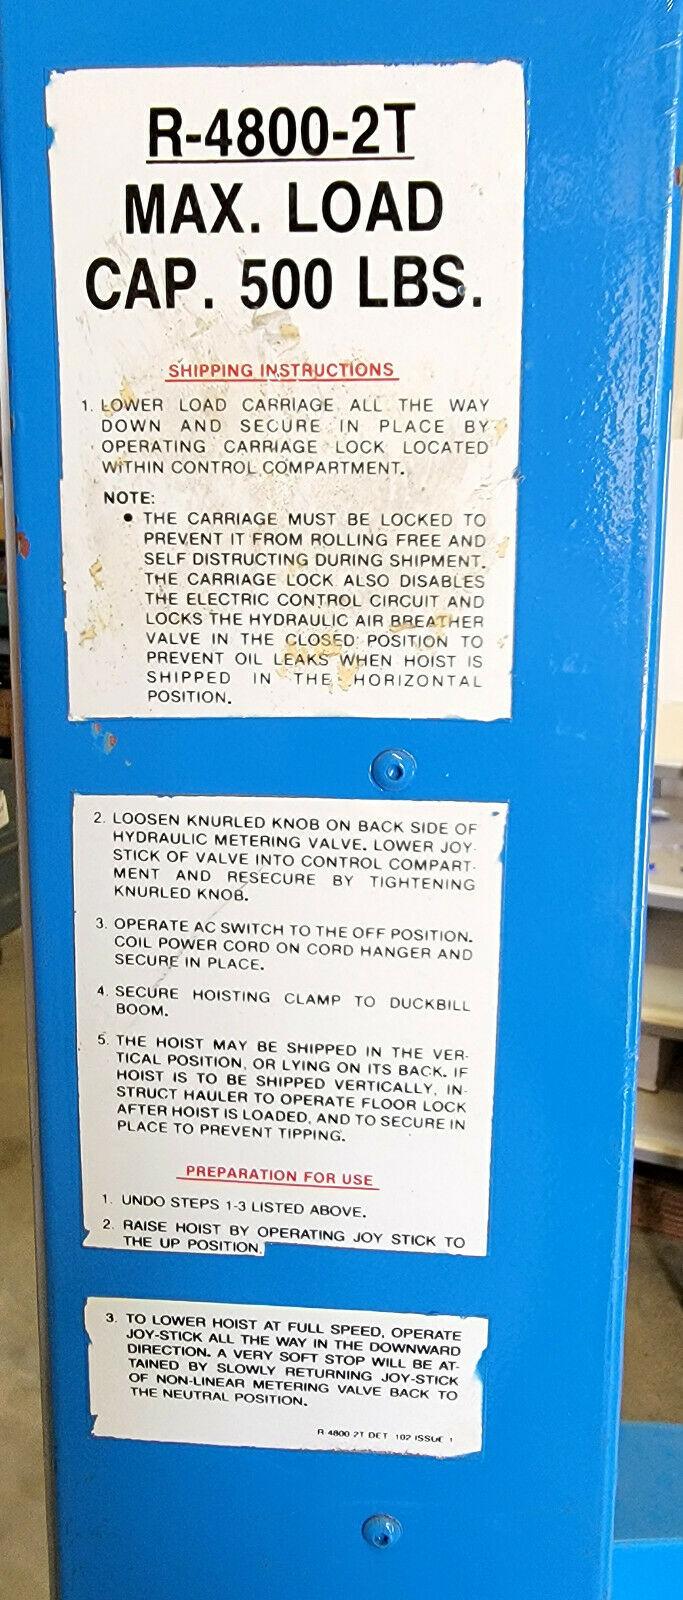 R-4800-2T
MAX. LOAD
CAP. 500 LBS.
SHIPPING INSTRUCTIONS
1. LOWER LOAD CARRIAGE ALL THE WAY
DOWN AND SECURE IN PLACE BY
OPERATING CARRIAGE LOCK LOCATED
WITHIN CONTROL COMPARTMENT.
NOTE:
• THE CARRIAGE MUST BE LOCKED TO
PREVENT IT FROM ROLLING FREE AND
SELF DISTRUCTING DURING SHIPMENT.
THE CARRIAGE LOCK ALSO DISABLES
THE ELECTRIC CONTROL CIRCUIT AND
LOCKS THE HYDRAULIC AIR BREATHER
VALVE IN THE CLOSED POSITION TO
PREVENT OIL LEAKS WHEN HOIST IS
SHIPPED IN THE HORIZONTAL
POSITION.
2. LOOSEN KNURLED KNOB ON BACK SIDE OF
HYDRAULIC METERING VALVE. LOWER JOY-
STICK OF VALVE INTO CONTROL COMPART-
MENT AND RESECURE BY TIGHTENING
KNURLED KNOB.
3. OPERATE AC SWITCH TO THE OFF POSITION.
COIL POWER CORD ON CORD HANGER AND
SECURE IN PLACE.
4. SECURE HOISTING CLAMP TO DUCKBILL
BOOM.
5. THE HOIST MAY BE SHIPPED IN THE VER-
TICAL POSITION, OR LYING ON ITS BACK. IF
HOIST IS TO BE SHIPPED VERTICALLY, IN-
STRUCT HAULER TO OPERATE FLOOR LOCK
AFTER HOIST IS LOADED, AND TO SECURE IN
PLACE TO PREVENT TIPPING.
PREPARATION FOR USE
1. UNDO STEPS 1-3 LISTED ABOVE.
2. RAISE HOIST BY OPERATING JOY STICK TO
THE UP POSITION.
3. TO LOWER HOIST AT FULL SPEED, OPERATE
JOY-STICK ALL THE WAY IN THE DOWNWARD
DIRECTION. A VERY SOFT STOP WILL BE AT-
TAINED BY SLOWLY RETURNING JOY-STICK
OF NON-LINEAR METERING VALVE BACK TO
THE NEUTRAL POSITION.
R 4800 2T DET 102 ISSUE 1